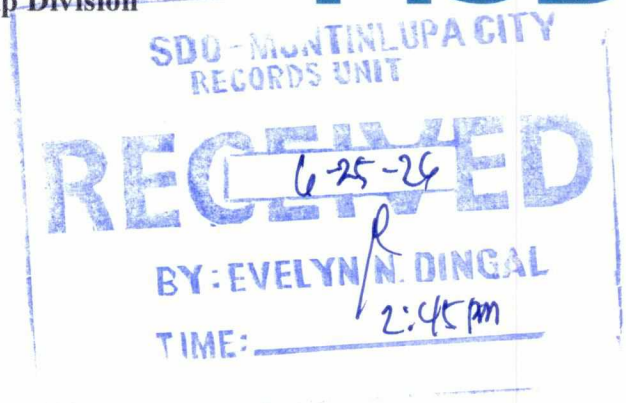 p Division
SDO - MUNTINLUPA CITY
RECORDS UNIT
RECEIVED
6-25-26
BY: EVELYN N. DINGAL
2:45 pm
TIME: